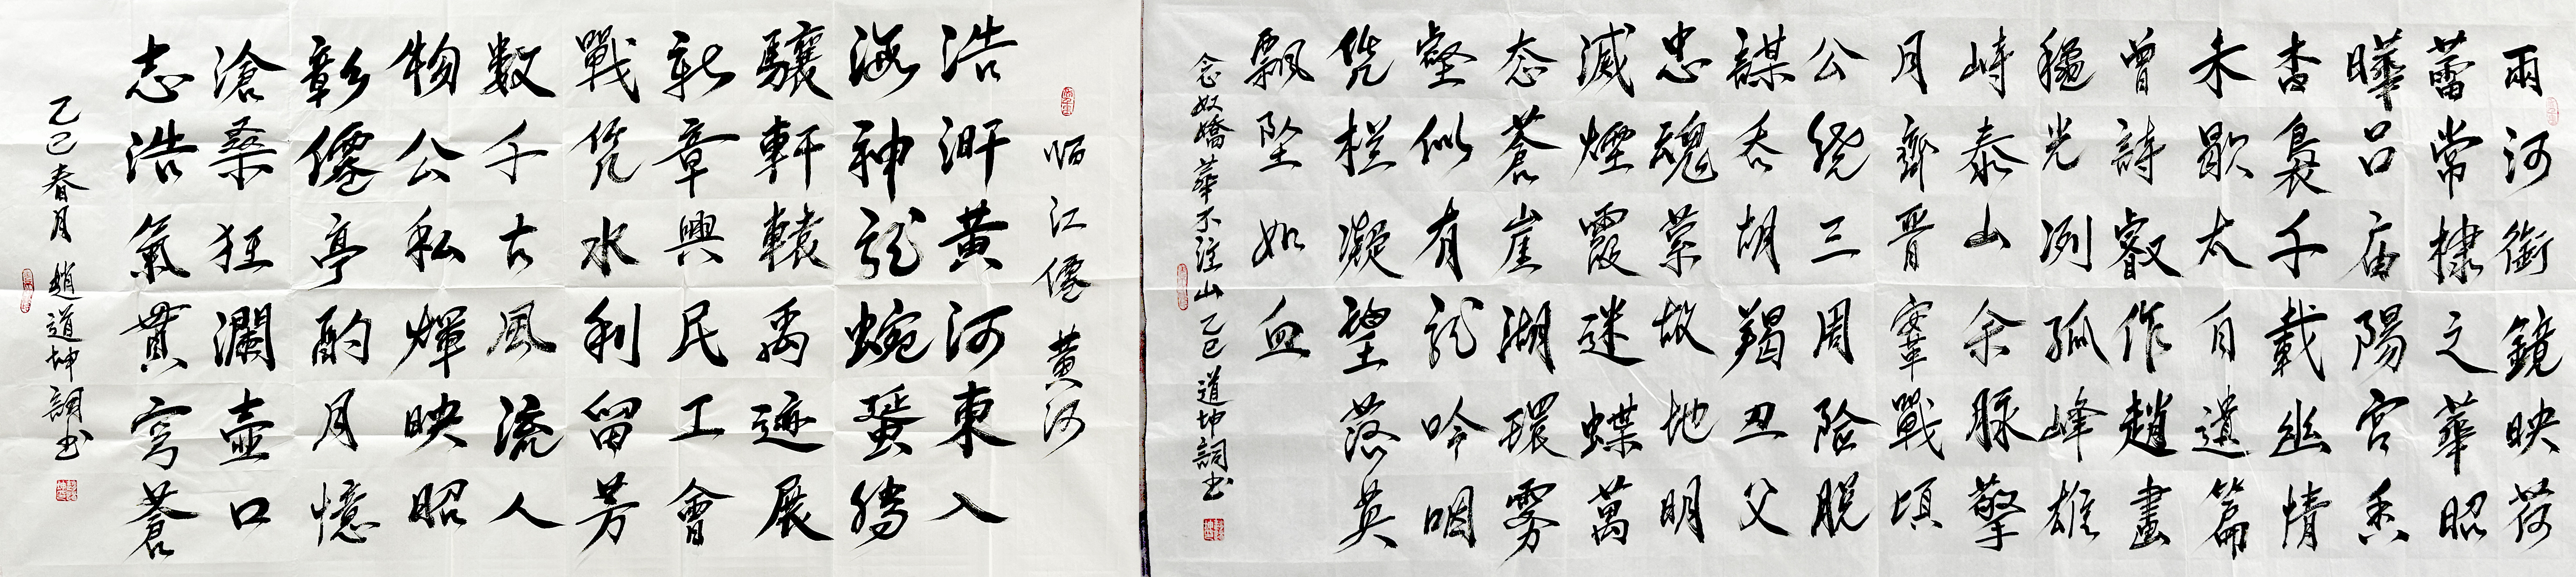 兩河銜鏡映荷
蕾常棣之華昭
曄呂庙陽宮香
杳裊千載幽情
未歇太白遺篇
曾詩叡作趙畫
穐光冽孤峰雄
峙泰山余脉擎
月齊晋鞌戰頃
公繞三周險脫
謀吞胡羯丑父
忠魂縈故地明
滅煙霞迷蝶萬
态蒼崖湖環雾
壑似有龍吟咽
凭栏凝望落英
飘坠如血
念奴嬌 華不注山 乙巳 道坤詞书
临江僊 黄河
浩澣黄河東入
海神龍蜿蜑騰
驤軒轅禹迹展
新章興民工會
戰凭水利留芳
數千古風流人
物公私煇映昭
彰僊亭酌月憶
滄桑狂瀾壺口
志浩氣貫穹蒼
乙巳春月 趙道坤詞书